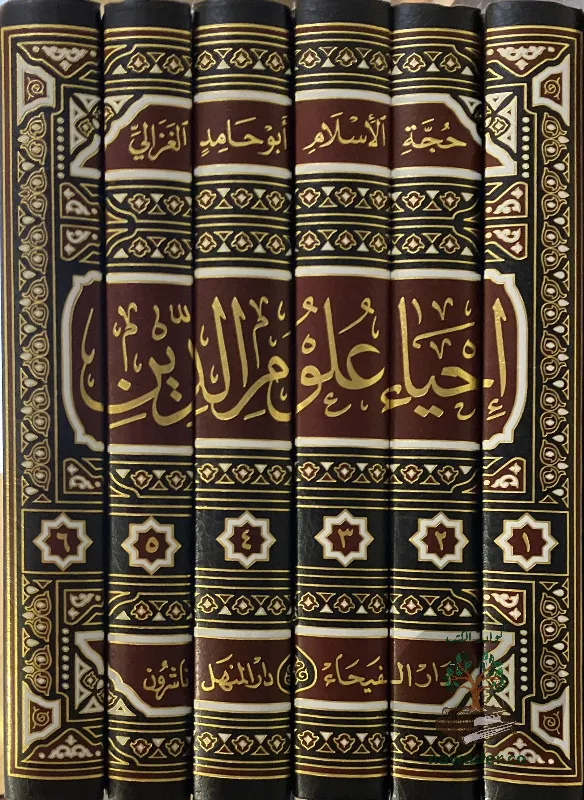 حُجَّةُ الْأَسْلَامِ أَبُو حَامِدٍ الْغَزَالِيُّ
إِحْيَاءُ عُلُومِ الدِّينِ
١ ٢ ٣ ٤ ٥ ٦
دَارُ الفَيحَاء دَارُ المَنهَل نَاشِرُون